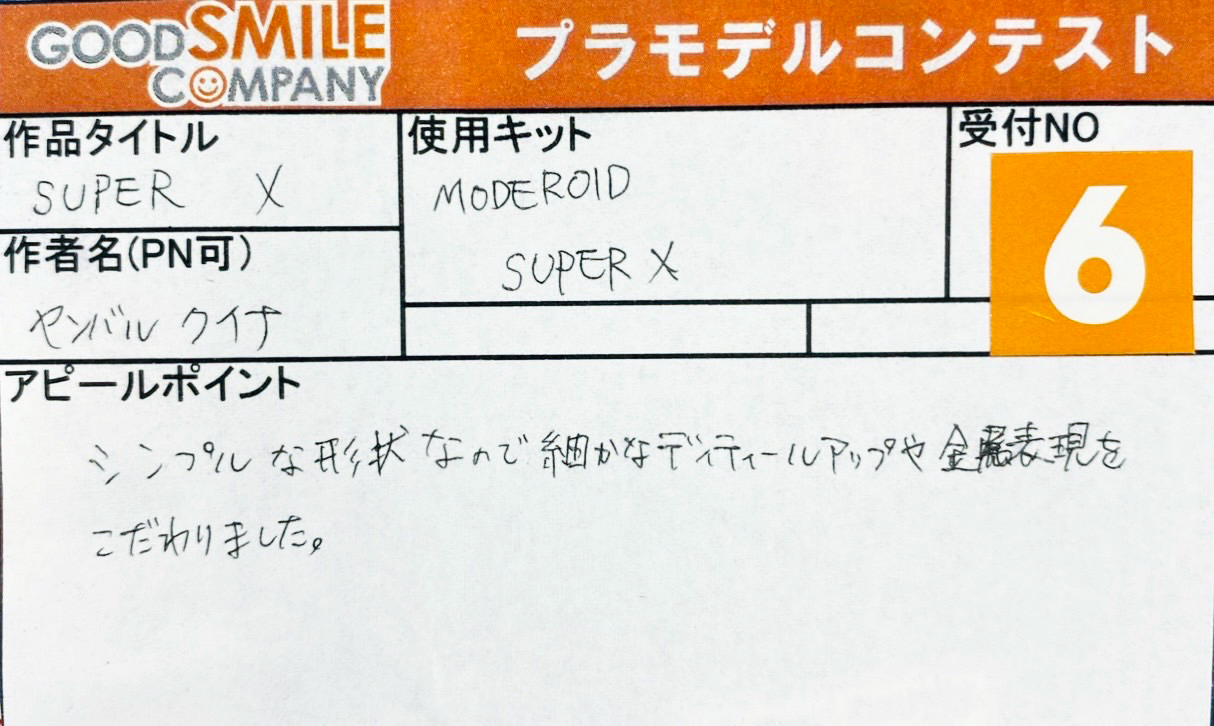 GOODSMILE
COMPANY
プラモデルコンテスト
作品タイトル
SUPER X
使用キット
MODEROID
SUPER X
受付NO
6
作者名(PN可)
ヤンバル クイナ
アピールポイント
シンプルな形状なので細かなディティールアップや金属表現を
こだわりました。